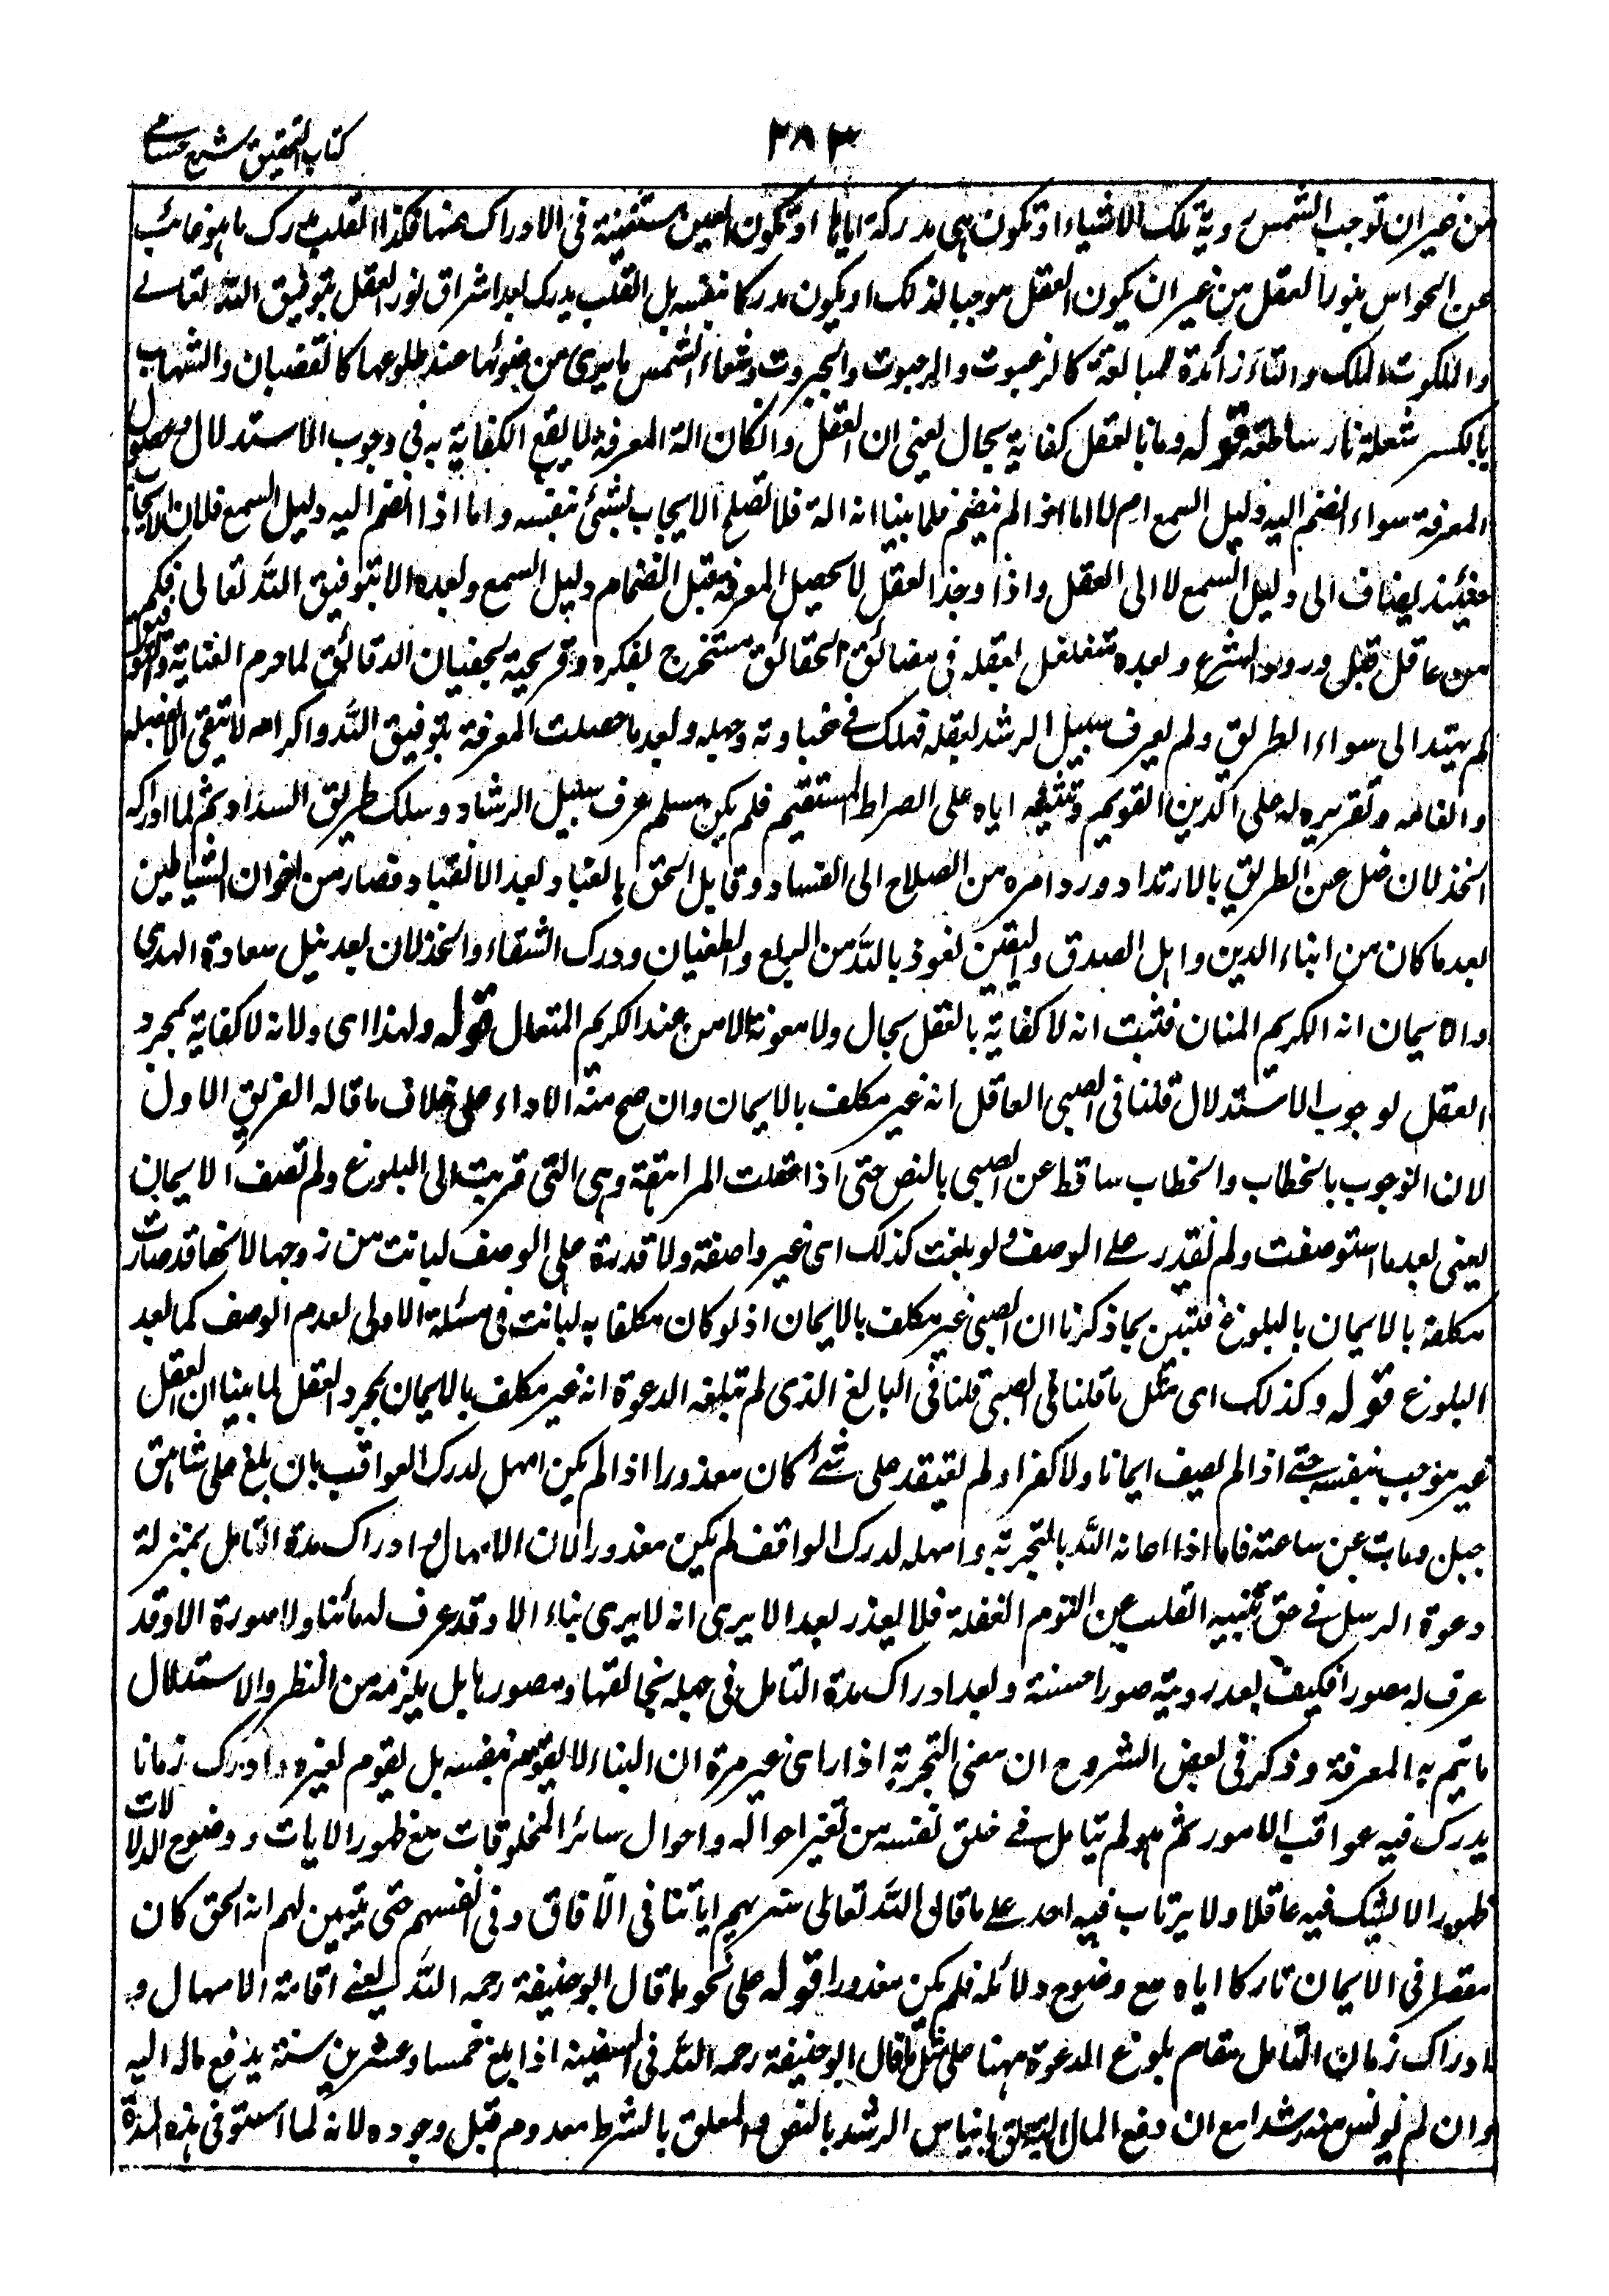 كتاب التحقيق شرح حسامي
٢٨٣
من غير ان توجب الشمس روية تلك الاشياء او تكون هى مدركة اياها او تكون العين مستغنية فى الادراك عنها فكذا القلب يدرك ما هو غائب
عن الحواس بنور العقل من غير ان يكون العقل موجبا لذلك او يكون مدركا بنفسه بل القلب يدرك بعد اشراق نور العقل بتوفيق الله تعالى
والملكوت الملك والتاء زائدة للمبالغة كالرغبوت والرهبوت والجبروت وشعاع الشمس ما يرى من ضوئها عند طلوعها كالقضبان والشهاب
بالكسر شعلة نار ساطعة قوله وما بالعقل كفاية بحال يعنى ان العقل وان كان الة المعرفة لا يقع الكفاية به فى وجوب الاستدلال وحصول
المعرفة سواء انضم اليه دليل السمع ام لا اما اذا لم ينضم فلما بينا انه الة فلا تصلح لايجاب شئ بنفسه واما اذا انضم اليه دليل السمع فلان الايجاب
حينئذ يضاف الى دليل السمع لا الى العقل واذا وجد العقل لا تحصيل المعرفة قبل انضمام دليل السمع وبعده الا بتوفيق الله تعالى فكم
من عاقل قبل ورود الشرع وبعده متغلغل بعقله فى مضائق الحقائق مستخرج بفكره وقريحته لخفيات الدقائق لما حرم العناية والتوفيق
لم يهتد الى سواء الطريق ولم يعرف سبيل الرشد بعقله فهلك فى غباوته وجهله وبعد ما حصلت المعرفة بتوفيق الله واكرامه لا تبقى الا بفضله
وانعامه وتقريره له على الدين القويم وتثبيته اياه على الصراط المستقيم فلم يكن مسلم عرف سبيل الرشاد وسلك طريق السداد ثم لما ادركه
الخذلان ضل عن الطريق بالارتداد ورد امره من الصلاح الى الفساد وقابل الحق بالعناد بعد الانقياد فصار من اخوان الشياطين
بعد ما كان من ابناء الدين واهل الصدق واليقين نعوذ بالله من الزيغ والطغيان ودرك الشقاء والخذلان بعد نيل سعادة الهدى
والايمان انه الكريم المنان فثبت انه لا كفاية بالعقل بحال ولا معونة الا من عند الكريم المتعال قوله ولهذا اى ولانه لا كفاية بمجرد
العقل لوجوب الاستدلال قلنا فى الصبى العاقل انه غير مكلف بالايمان وان صح منه الاداء على خلاف ما قاله الفريق الاول
لان الوجوب بالخطاب والخطاب ساقط عن الصبى بالنص حتى اذا عقلت المراهقة وهى التى قربت الى البلوغ ولم تصف الايمان
يعنى بعد ما استوصفت ولم تقدر على الوصف ولو بلغت كذلك اى غير واصفة ولا قدرة على الوصف لبانت من زوجها لانها قد صارت
مكلفة بالايمان بالبلوغ فتبين بما ذكرنا ان الصبى غير مكلف بالايمان اذ لو كان مكلفا به لبانت فى مسئلة الاولى لعدم الوصف كما بعد
البلوغ قوله وكذلك اى مثل ما قلنا فى الصبى قلنا فى البالغ الذى لم تبلغه الدعوة انه غير مكلف بالايمان بمجرد العقل لما بينا ان العقل
غير موجب بنفسه حتى اذا لم يصف ايمانا ولا كفرا ولم يعتقد على شئ كان معذورا اذا لم يكن امهل لدرك العواقب بان بلغ على شاهق
جبل ومات عن ساعته فاما اذا اعانه الله بالتجربة وامهله لدرك العواقف لم يكن معذورا لان الامهال وادراك مدة التامل بمنزلة
دعوة الرسل فى حق تنبيه القلب عن النوم الغفلة فلا يعذر بعد الا يرى انه لا يرى بناء الا وقد عرف له بانيا ولا صورة الا وقد
عرف له مصورا فكيف بعد روية صورا حسنة وبعد ادراك مدة التامل فى جهله بخالقها ومصورها بل يلزمه من النظر والاستدلال
ما يتم به المعرفة وذكر فى بعض الشروح ان معنى التجربة اذا راى غير مرة ان البناء لا يقوم بنفسه بل يقوم بغيره وادرك زمانا
يدرك فيه عواقب الامور ثم هو لم يتامل فى خلق نفسه من تغير احواله واحوال سائر المخلوقات مع ظهور الايات ووضوح الدلالات
ظهورا لا يشك فيه عاقلا ولا يرتاب فيه احد على ما قال الله تعالى سنريهم اياتنا فى الآفاق وفى انفسهم حتى يتبين لهم انه الحق كان
مقصرا فى الايمان تاركا اياه مع وضوح دلائله فلم يكن معذورا قوله على نحو ما قال ابو حنيفة رحمه الله يعنى اقامة الامهال و
ادراك زمان التامل مقام بلوغ الدعوة ههنا على مثل ما قال ابو حنيفة رحمه الله فى السفيه اذا بلغ خمسا وعشرين سنة يدفع ماله اليه
وان لم يونس منه رشدا مع ان دفع المال اليه معلق بايناس الرشد بالنص والمعلق بالشرط معدوم قبل وجوده لانه لما استوفى هذه المدة